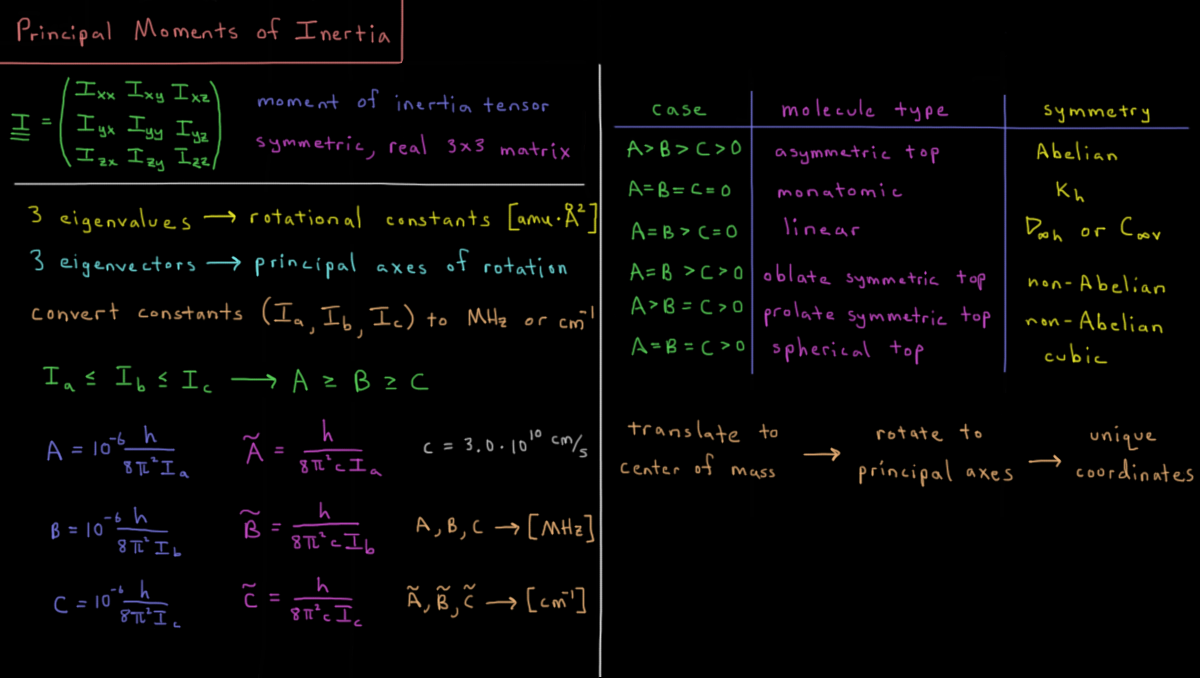 Principal Moments of Inertia
I = ( Ixx Ixy Ixz
Iyx Iyy Iyz
Izx Izy Izz )
moment of inertia tensor
symmetric, real 3x3 matrix
3 eigenvalues → rotational constants [amu·Å²]
3 eigenvectors → principal axes of rotation
convert constants (Ia, Ib, Ic) to MHz or cm⁻¹
Ia ≤ Ib ≤ Ic → A ≥ B ≥ C
A = 10⁻⁶ h / 8π²Ia   Ã = h / 8π²cIa   c = 3.0·10¹⁰ cm/s
B = 10⁻⁶ h / 8π²Ib   B̃ = h / 8π²cIb   A, B, C → [MHz]
C = 10⁻⁶ h / 8π²Ic   C̃ = h / 8π²cIc   Ã, B̃, C̃ → [cm⁻¹]
case   molecule type   symmetry
A>B>C>0   asymmetric top   Abelian
A=B=C=0   monatomic   Kh
A=B>C=0   linear   D∞h or C∞v
A=B>C>0   oblate symmetric top   non-Abelian
A>B=C>0   prolate symmetric top   non-Abelian
A=B=C>0   spherical top   cubic
translate to center of mass → rotate to principal axes → unique coordinates